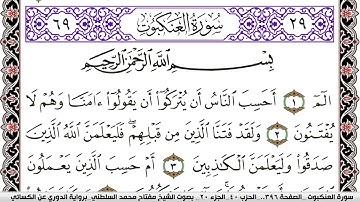 ٢٩ سُورَةُ العَنكَبُوتِ ٦٩
بِسْمِ اللَّهِ الرَّحْمَٰنِ الرَّحِيمِ
الٓمٓ ١ أَحَسِبَ النَّاسُ أَن يُتْرَكُوٓا۟ أَن يَقُولُوٓا۟ ءَامَنَّا وَهُمْ لَا
يُفْتَنُونَ ٢ وَلَقَدْ فَتَنَّا الَّذِينَ مِن قَبْلِهِمْ فَلَيَعْلَمَنَّ اللَّهُ الَّذِينَ
صَدَقُوا۟ وَلَيَعْلَمَنَّ الْكَٰذِبِينَ ٣ أَمْ حَسِبَ الَّذِينَ يَعْمَلُونَ
سورة العنكبوت .. الصفحة ٣٩٦.. الحزب ٤٠ .. الجزء ٢٠ .. بصوت الشيخ مفتاح محمد السلطني برواية الدوري عن الكسائي